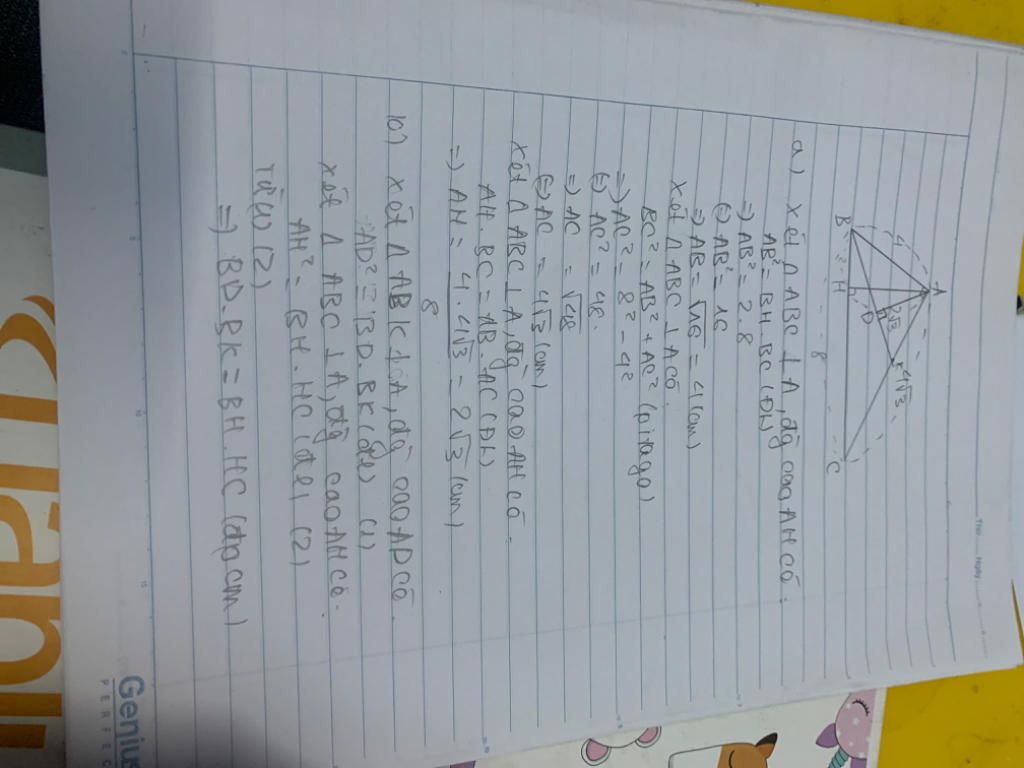 Thứ Ngày
A
B
H
C
D
K
2
8
2√3
4√3
a) Xét Δ ABC ⊥ A, đg cao AH có.
AB² = BH. BC (ĐL)
=) AB² = 2.8
(=) AB² = 16
=) AB = √16 = 4 (cm)
Xét Δ ABC ⊥ A có
BC² = AB² + AC² (pitago)
=) AC² = 8² - 4²
(=) AC² = 48.
=) AC = √48
(=) AC = 4√3 (cm)
Xét Δ ABC ⊥ A, đg cao AH có.
AH. BC = AB. AC (ĐL)
=) AH = 4.4√3 = 2√3 (cm)
8
b) Xét Δ ABK ⊥ A, đg cao AD có
AD² = BD. BK (đl) (1)
Xét Δ ABC ⊥ A, đg cao AH có.
AH² = BH. HC (đl) (2)
(2)
=) BD. BK = BH. HC (đpcm)
Genius
PERFEC